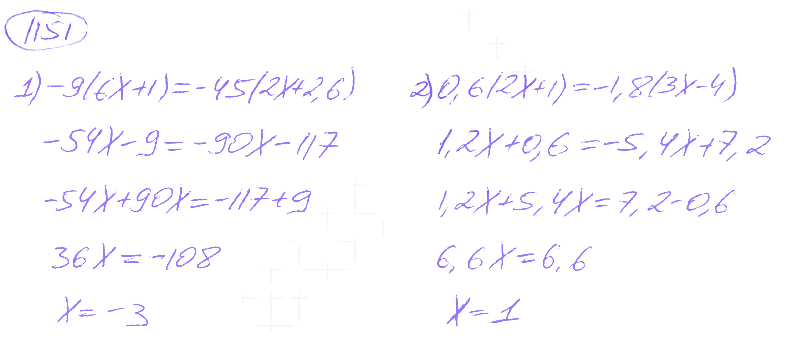 1151
1) -9(6x+1)=-45(2x+2,6)
-54x-9=-90x-117
-54x+90x=-117+9
36x=-108
x=-3
2) 0,6(2x+1)=-1,8(3x-4)
1,2x+0,6=-5,4x+7,2
1,2x+5,4x=7,2-0,6
6,6x=6,6
x=1